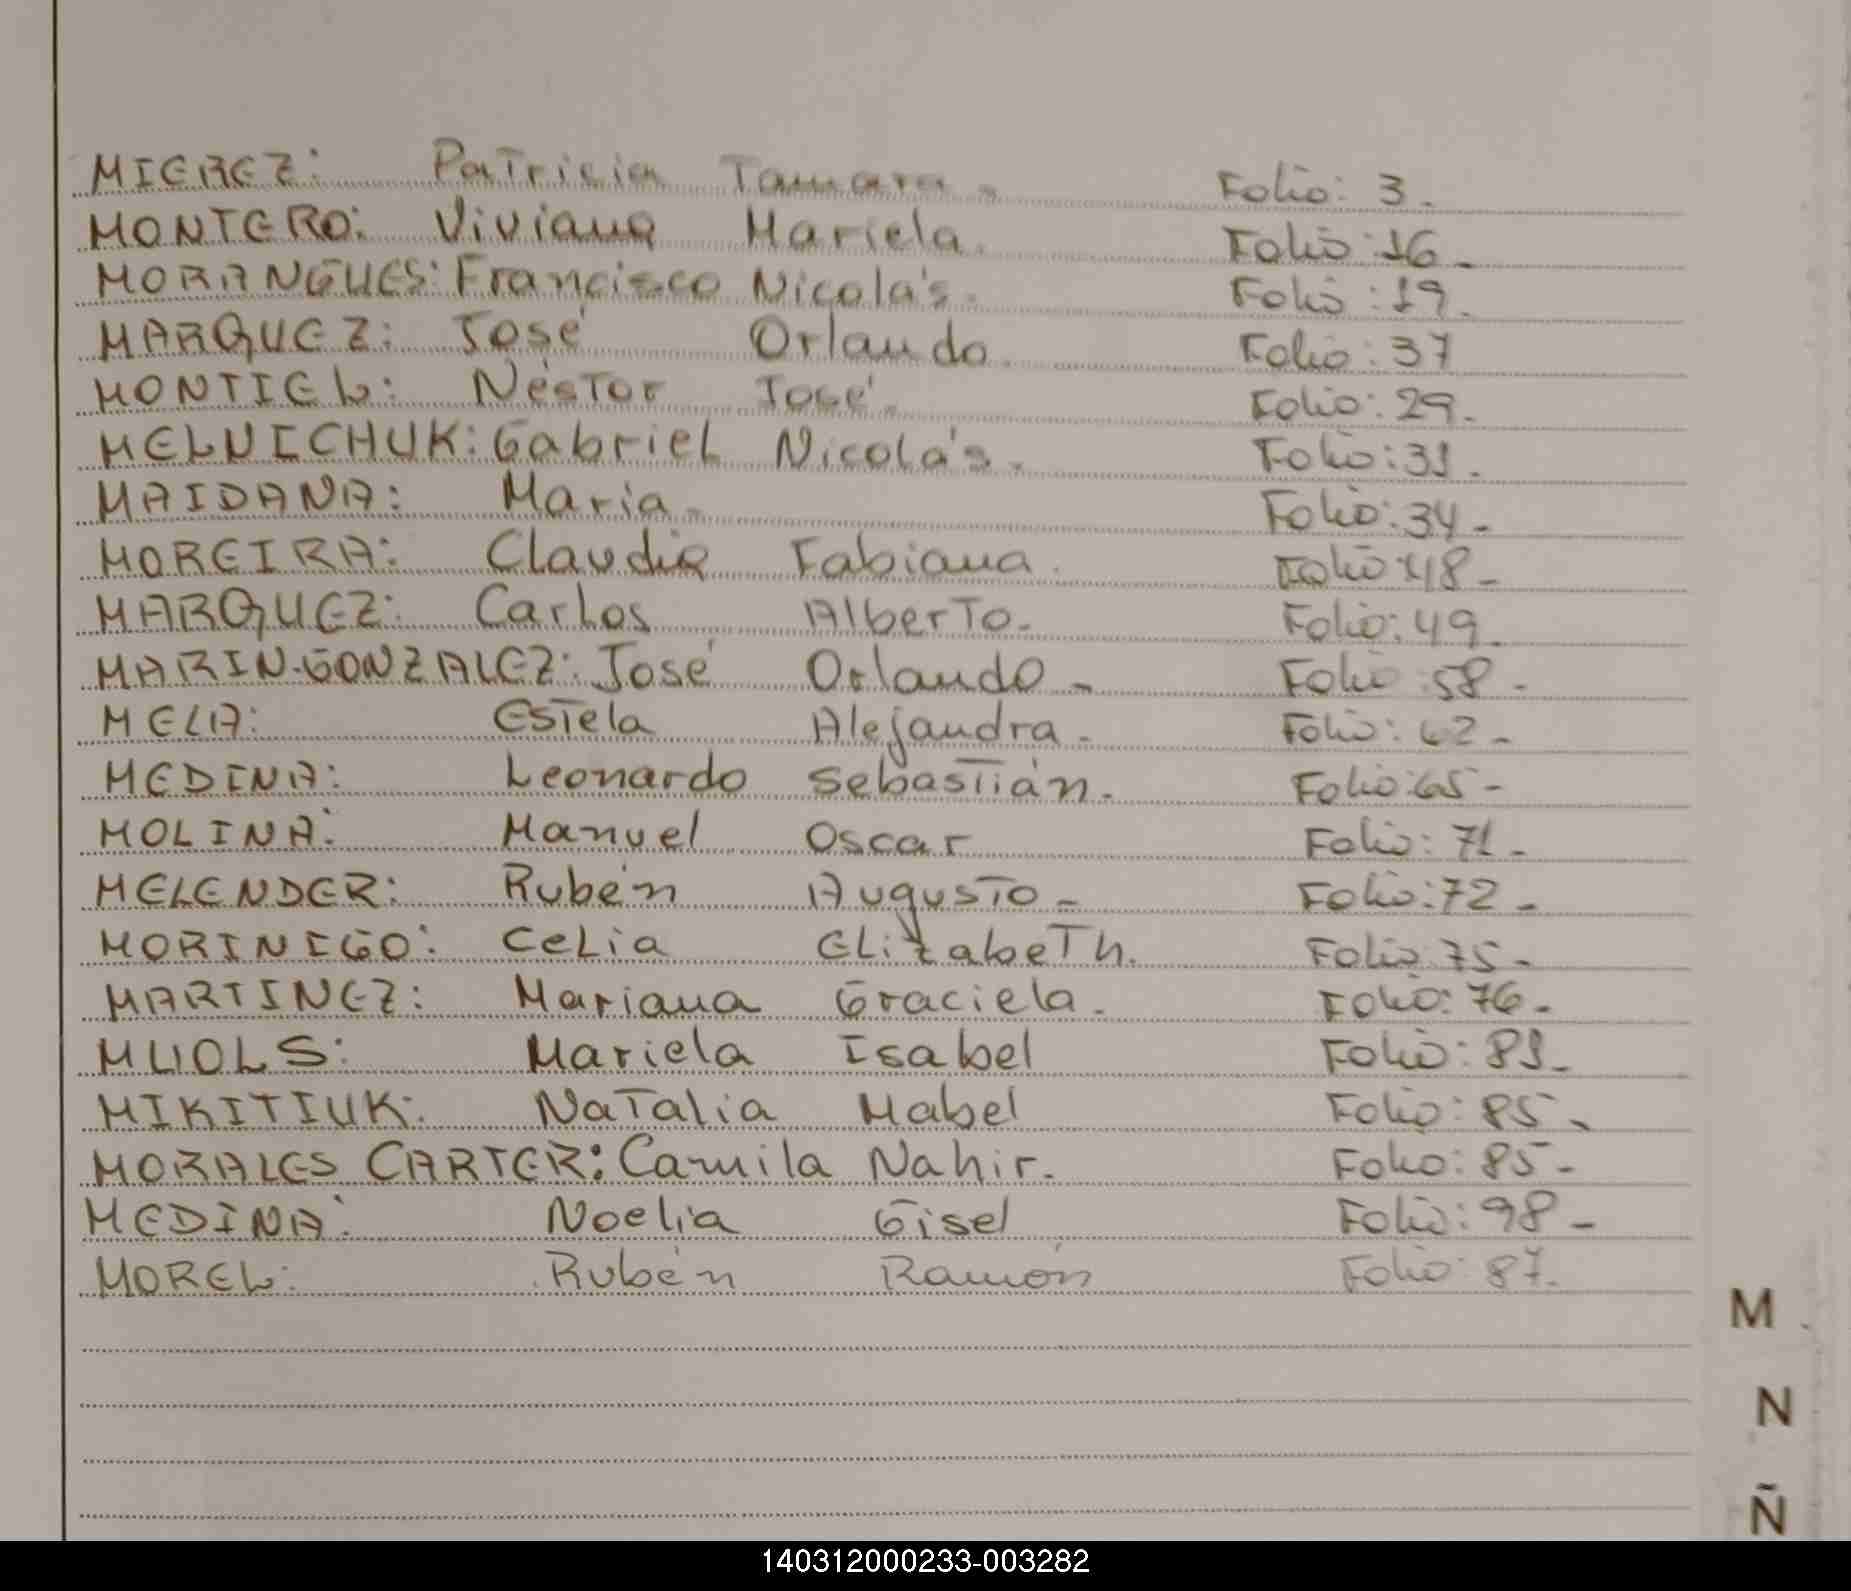 MIEREZ: Patricia Tamara. Folio: 3.
MONTERO: Viviana Mariela. Folio: 16.
MORANGUES: Francisco Nicolás. Folio: 19.
MARQUEZ: José Orlando. Folio: 37
MONTIEL: Néstor José. Folio: 29.
MELNICHUK: Gabriel Nicolás. Folio: 31.
MAIDANA: María. Folio: 34.
MOREIRA: Claudia Fabiana. Folio: 48.
MARQUEZ: Carlos Alberto. Folio: 49.
MARIN-GONZALEZ: José Orlando. Folio: 58.
MELIA: Estela Alejandra. Folio: 62.
MEDINA: Leonardo Sebastián. Folio: 65.
MOLINA: Manuel Oscar Folio: 71.
MELENDER: Rubén Augusto. Folio: 72.
MORINIGO: Celia Elizabeth. Folio: 75.
MARTINEZ: Mariana Graciela. Folio: 76.
MUOLS: Mariela Isabel Folio: 81.
MIKITIUK: Natalia Mabel Folio: 85.
MORALES CARTER: Camila Nahir. Folio: 85.
MEDINA: Noelia Gisel Folio: 98.
MOREL: Rubén Ramón Folio: 87.
M
N
Ñ
140312000233-003282